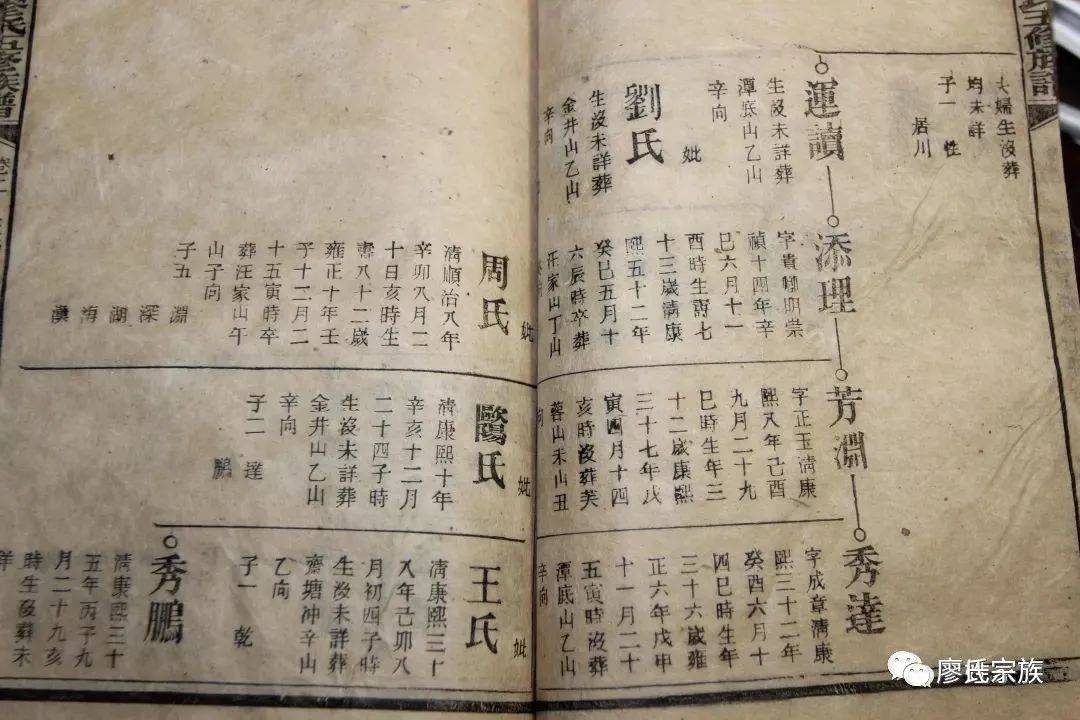 夫婦生沒葬
均未詳
子一 性
居川
運讀
生沒未詳葬
潭底山乙山
辛向
妣
劉氏
生沒未詳葬
金井山乙山
辛向
添理
字貴卿明崇
禎十四年辛
巳六月十一
酉時生壽七
十三歲清康
熙五十二年
癸巳五月十
六辰時卒葬
汪家山丁山
妣
周氏
清順治八年
辛卯八月二
十日亥時生
壽八十二歲
雍正十年壬
子十二月二
十五寅時卒
葬汪家山午
山子向
子五
淵
深
湖
海
漢
芳淵
字正玉清康
熙八年己酉
九月二十九
巳時生年三
十二歲康熙
三十七年戊
寅四月十四
亥時沒葬芙
蓉山未山丑
向
妣
歐陽氏
清康熙十年
辛亥十二月
二十四子時
生沒未詳葬
金井山乙山
辛向
子二
達
鵬
秀達
字成章清康
熙三十二年
癸酉六月十
四巳時生年
三十六歲雍
正六年戊申
十一月二十
五寅時沒葬
潭底山乙山
辛向
妣
王氏
清康熙三十
八年己卯八
月初四子時
生沒未詳葬
齋塘冲辛山
乙向
子一 乾
秀鵬
清康熙三十
五年丙子九
月二十九亥
時生沒葬未
詳
五修族譜
廖氏宗族